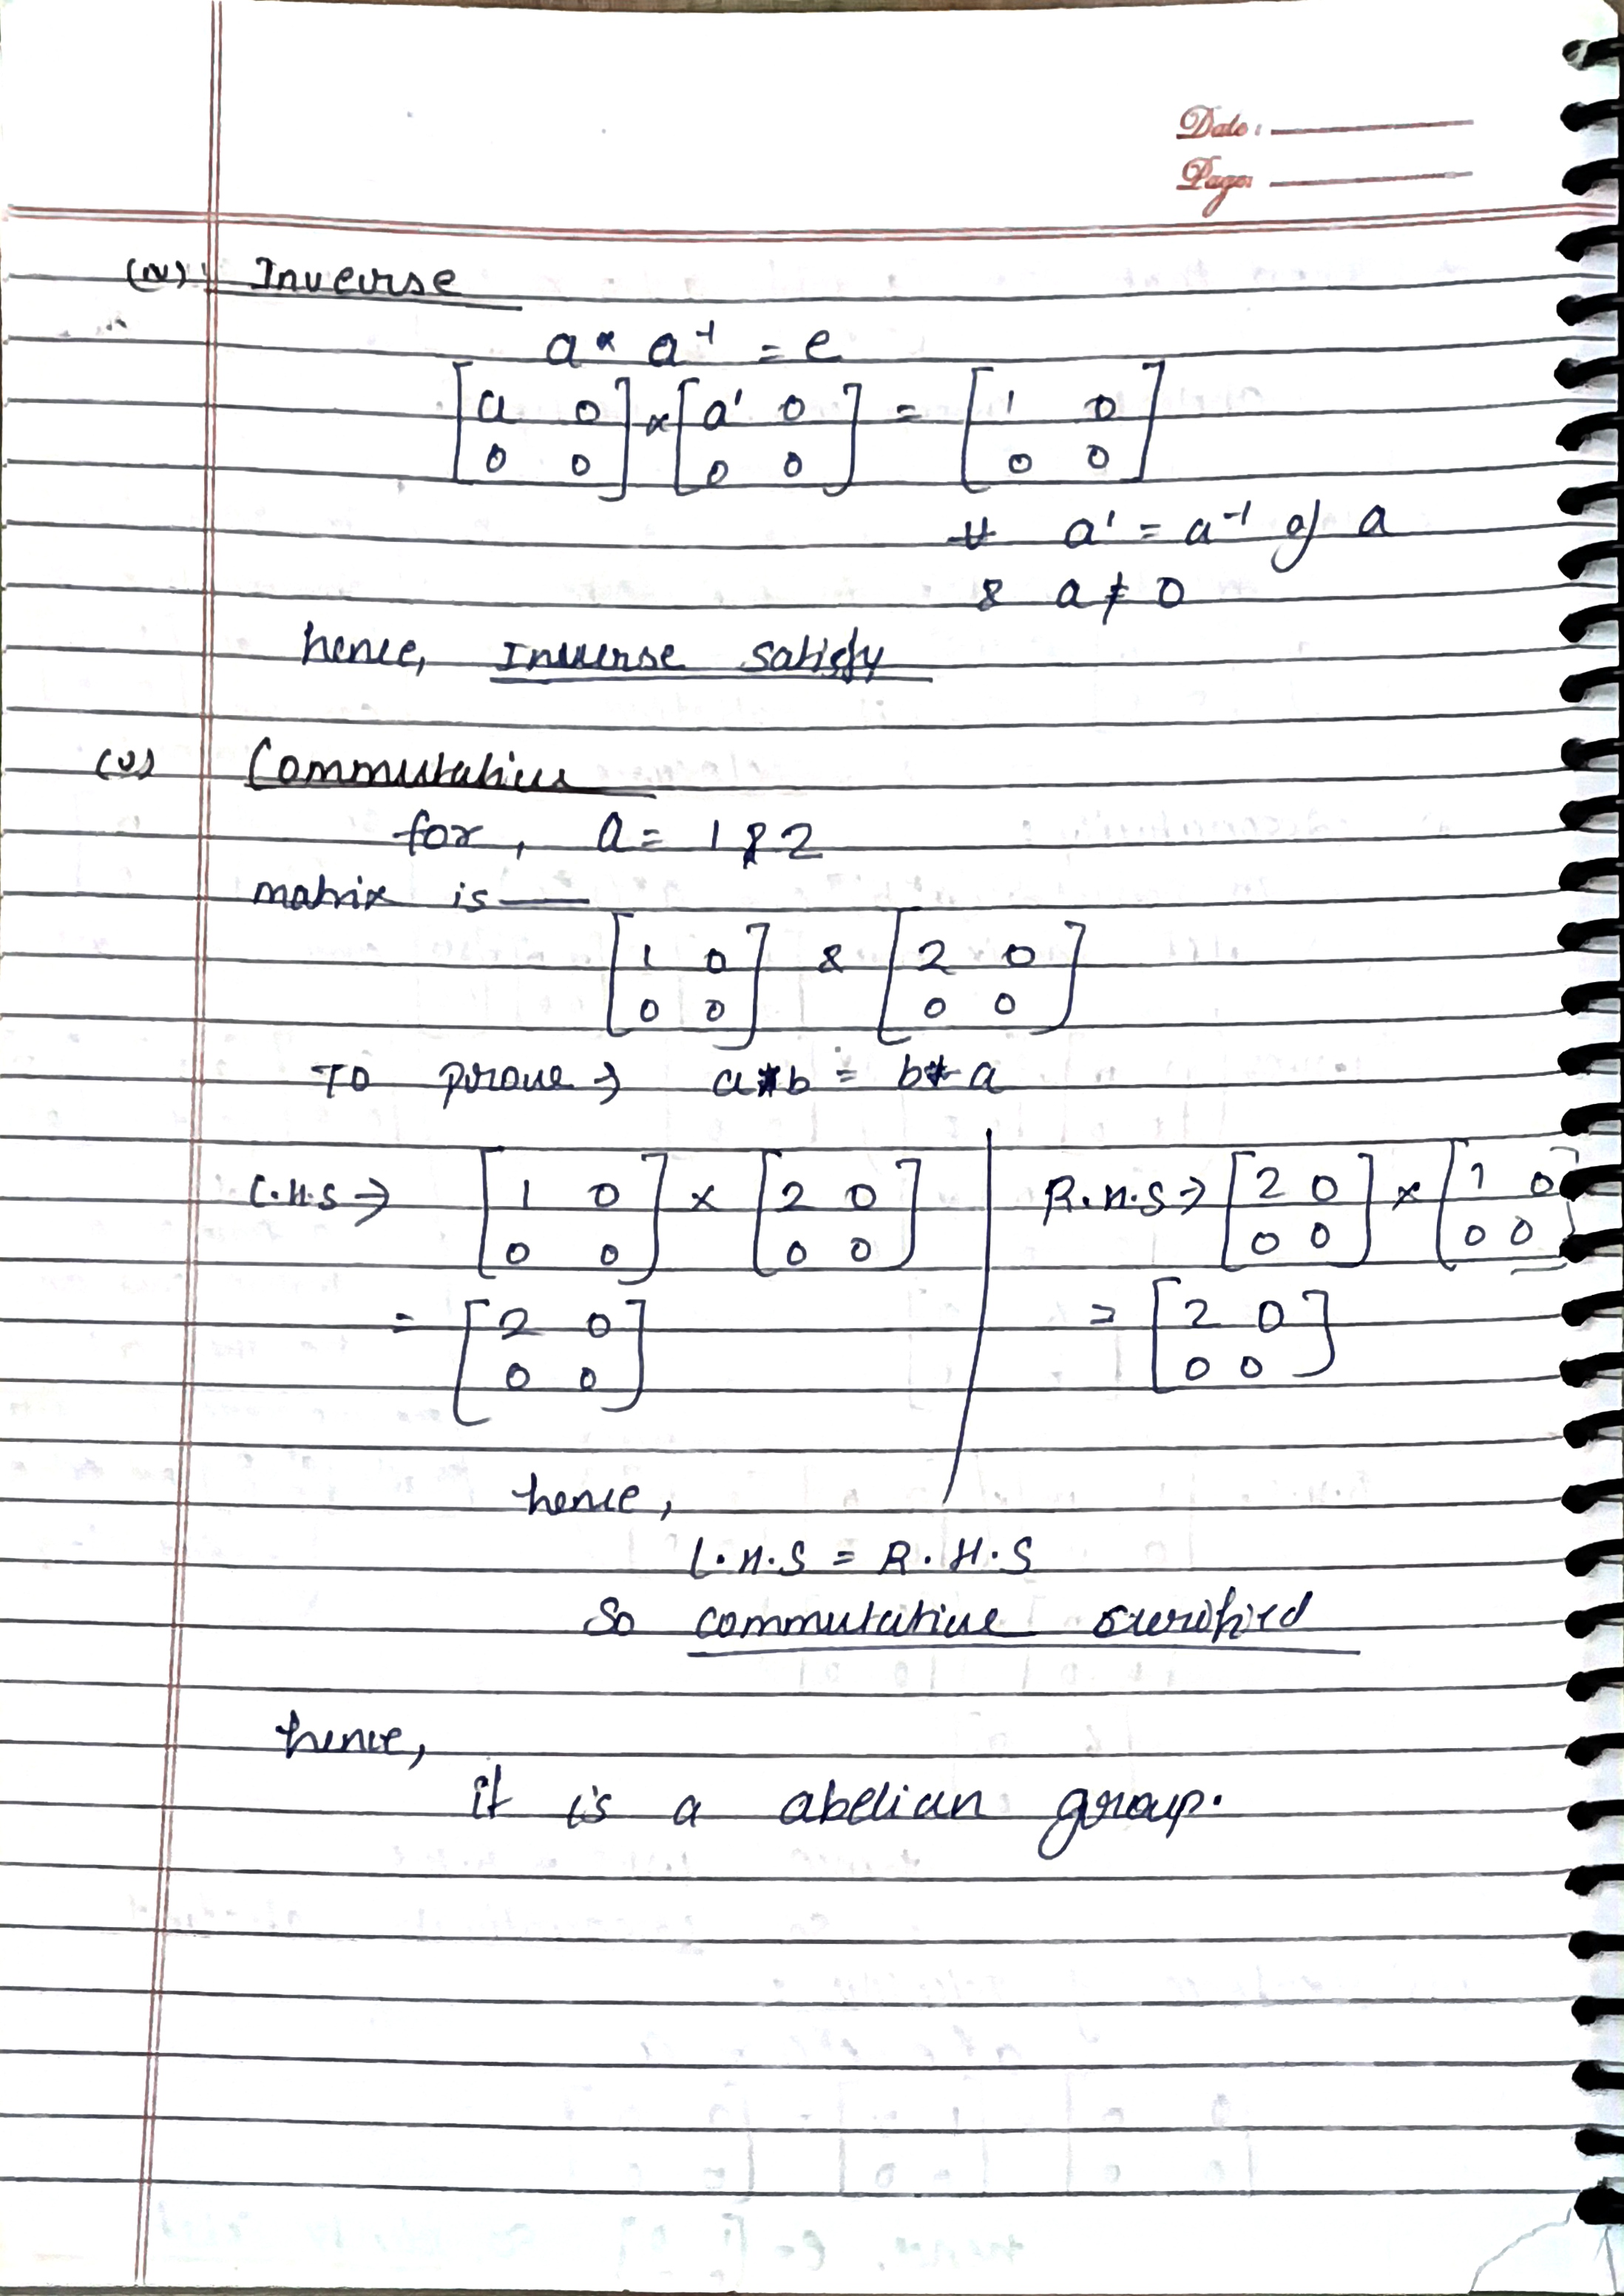 Date:
Page:
(iv) Inverse
a * a⁻¹ = e
[a 0; 0 0] * [a' 0; 0 0] = [1 0; 0 0]
∀ a' = a⁻¹ of a
& a ≠ 0
hence, Inverse satisfy
(v) Commutative
for, a = 1 & 2
matrix is —
[1 0; 0 0] & [2 0; 0 0]
To prove → a*b = b*a
L.H.S → [1 0; 0 0] × [2 0; 0 0]
= [2 0; 0 0]
R.H.S → [2 0; 0 0] × [1 0; 0 0]
= [2 0; 0 0]
hence,
L.H.S = R.H.S
So commutative
hence,
it is a abelian group.